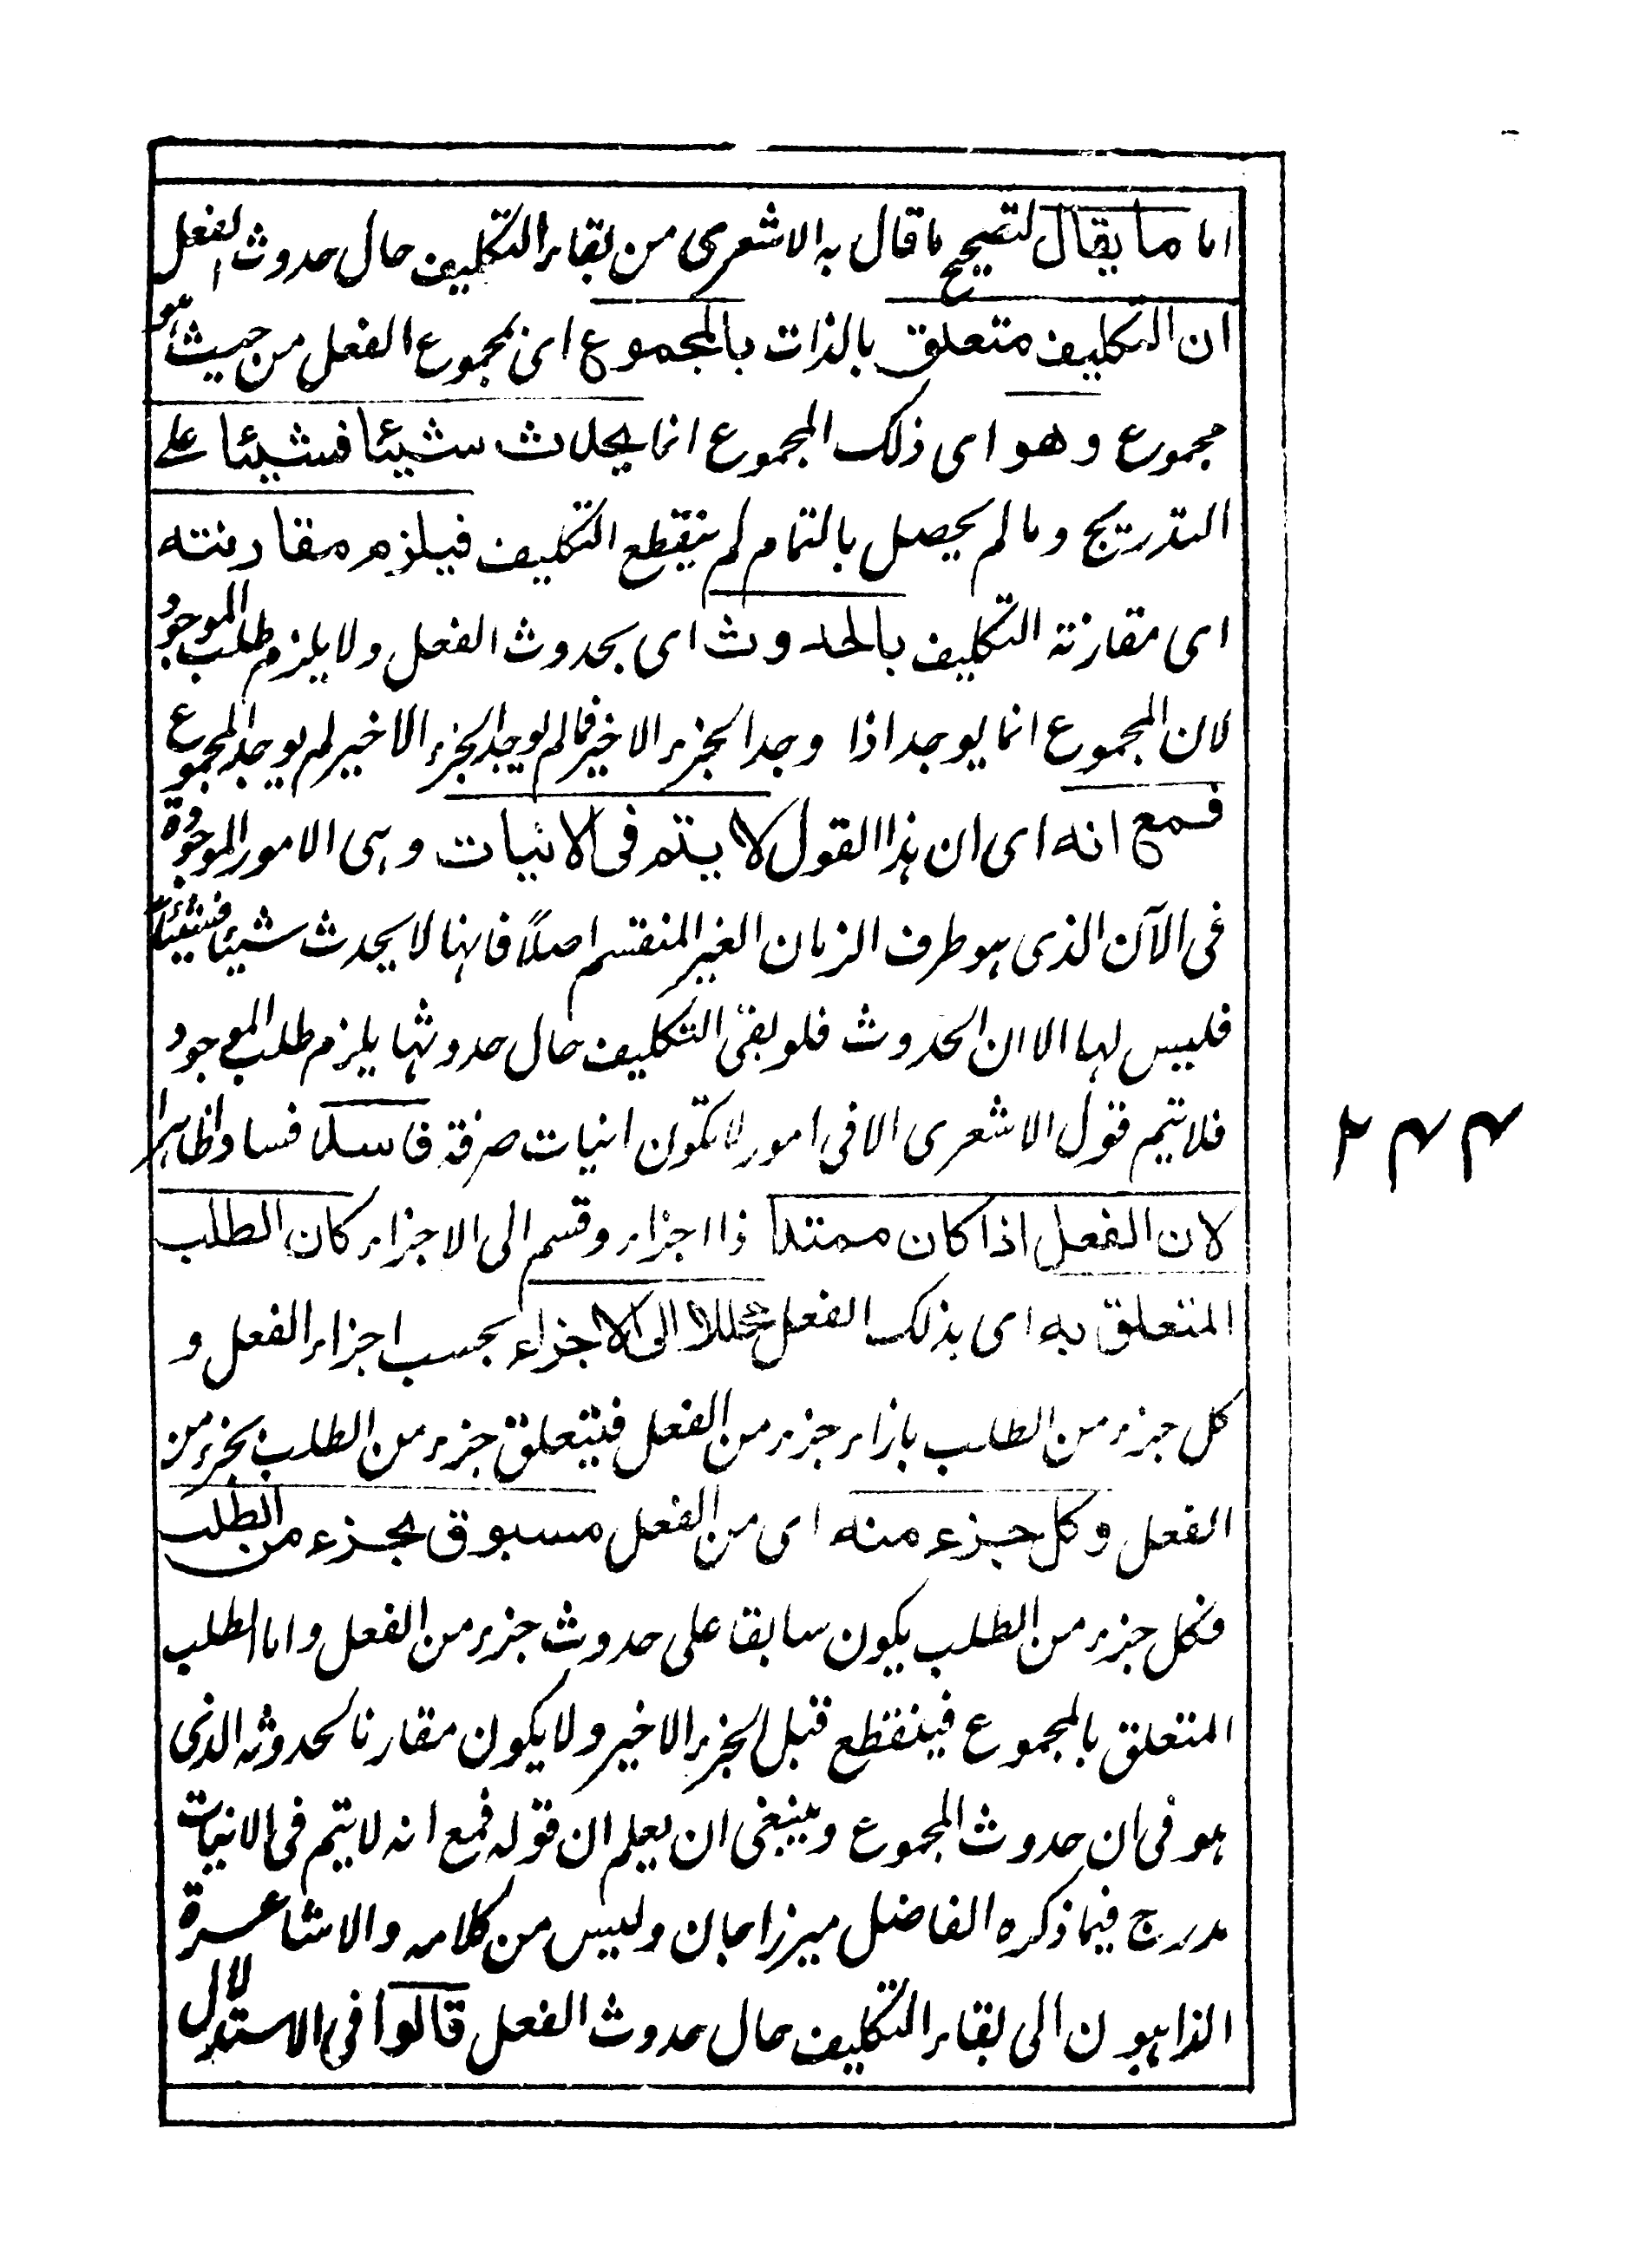 اما ما يقال لتصحيح ما قال به الاشعرى من بقاء التكليف حال حدوث الفعل
ان التكليف متعلق بالذات بالمجموع اى بمجموع الفعل من حيث هو
مجموع وهو اى ذلك المجموع انما يحدث شيئا فشيئا على
التدريج وما لم يحصل بالتمام لم ينقطع التكليف فيلزم مقارنته
اى مقارنة التكليف بالحدوث اى بحدوث الفعل ولا يلزم طلب الموجود
لان المجموع انما يوجد اذا وجد الجزء الاخير فما لم يوجد الجزء الاخير لم يوجد المجموع
فمع انه اى ان هذا القول لا يتم فى الانيات وهى الامور الموجودة
فى الآن الذى هو طرف الزمان الغير المنقسم اصلاً فانها لا يحدث شيئا فشيئا
فليس لها الا ان الحدوث فلو بقى التكليف حال حدوثها يلزم طلب الموجود
فلا يتم قول الاشعرى الا فى امور لا تكون انيات صرفة فاسد فسادا ظاهرا
لان الفعل اذا كان ممتدا ذا اجزاء وقسم الى الاجزاء كان الطلب
المتعلق به اى بذلك الفعل محللا الى الاجزاء بحسب اجزاء الفعل و
كل جزء من الطلب بازاء جزء من الفعل فيتعلق جزء من الطلب بجزء من
الفعل وكل جزء منه اى من الفعل مسبوق بجزء من الطلب
فكل جزء من الطلب يكون سابقا على حدوث جزء من الفعل واما الطلب
المتعلق بالمجموع فينقطع قبل الجزء الاخير ولا يكون مقارنا لحدوثه الذى
هو فى ان حدوث المجموع وينبغى ان يعلم ان قوله فمع انه لا يتم فى الانيات
مدرج فيما ذكره الفاضل ميرزا جان وليس من كلامه والاشاعرة
الذاهبون الى بقاء التكليف حال حدوث الفعل قالوا فى الاستدلال